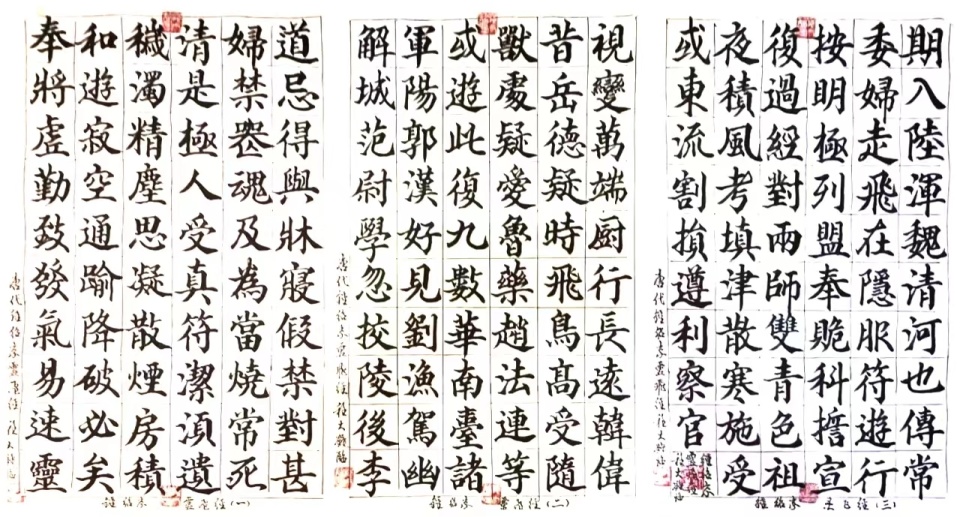 道忌得與牀寢假禁對甚
婦禁魂及為當燒常死
清是極人受真符潔須遺
穢濁精塵思凝散煙房積
和遊寂空通踰降破必矣
奉將虛勤致發氣易速靈
唐代鍾紹京靈飛經
靈飛經(一)
視變萬端厨行長遠韓偉
昔岳德疑時飛鳥高受隨
獸處疑愛魯藥趙法連等
或遊此復九數華南臺諸
軍陽郭漢好見劉漁駕幽
解城范尉學忽陵後李
唐代鍾紹京靈飛經
靈飛經(二)
期入陸渾魏清河也傳常
委婦走飛在隱服符遊行
按明極列盟奉跪科宣
復過經對兩師雙青色祖
夜積風考填津散寒施受
或東流割損遵利察官
唐代鍾紹京靈飛經
靈飛經(三)